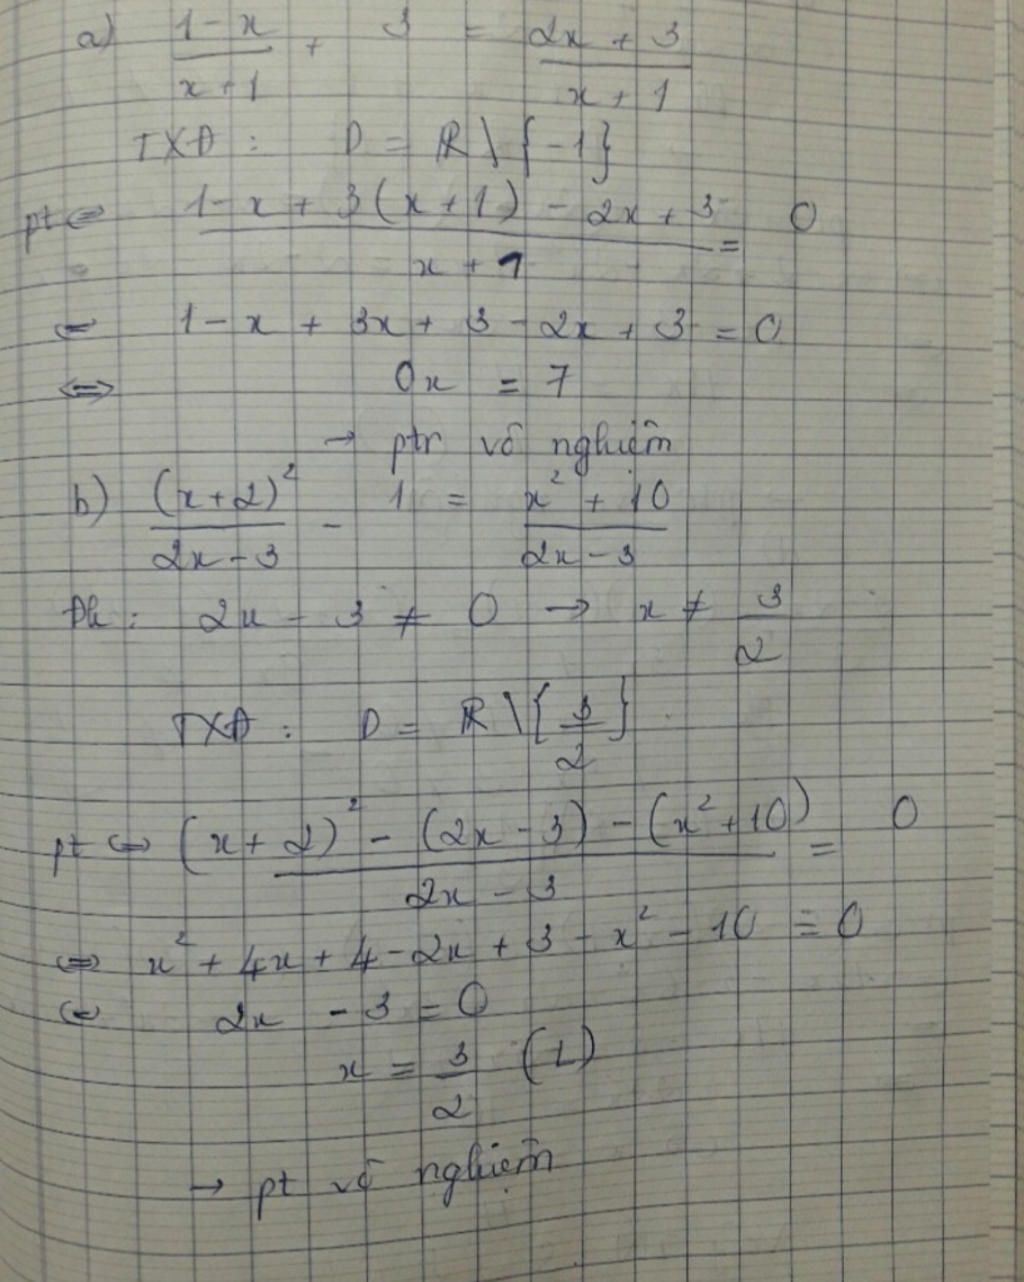 a) (1-x)/(x+1) + 3 = (2x+3)/(x+1)
TXĐ : D = ℝ \ {-1}
pt ⇔ (1-x + 3(x+1) - 2x + 3)/(x+1) = 0
⇔ 1-x + 3x + 3 - 2x + 3 = 0
⇔ 0x = 7
→ ptr vô nghiệm
b) (x+2)²/(2x-3) - 1 = (x²+10)/(2x-3)
Đk : 2x - 3 ≠ 0 → x ≠ 3/2
TXĐ : D = ℝ \ {3/2}
pt ⇔ ((x+2)² - (2x-3) - (x²+10))/(2x-3) = 0
⇔ x² + 4x + 4 - 2x + 3 - x² - 10 = 0
⇔ 2x - 3 = 0
x = 3/2 (L)
→ pt vô nghiệm